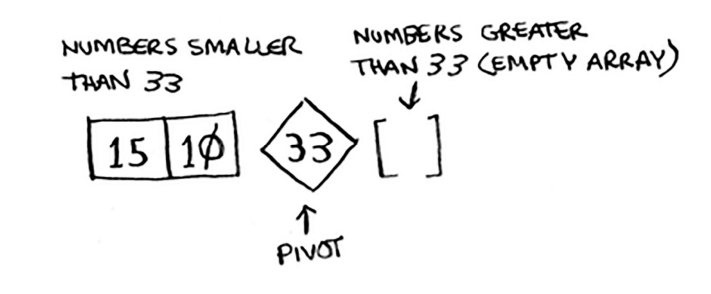 NUMBERS SMALLER
THAN 33
NUMBERS GREATER
THAN 33 (EMPTY ARRAY)
15 10 33 [ ]
PIVOT